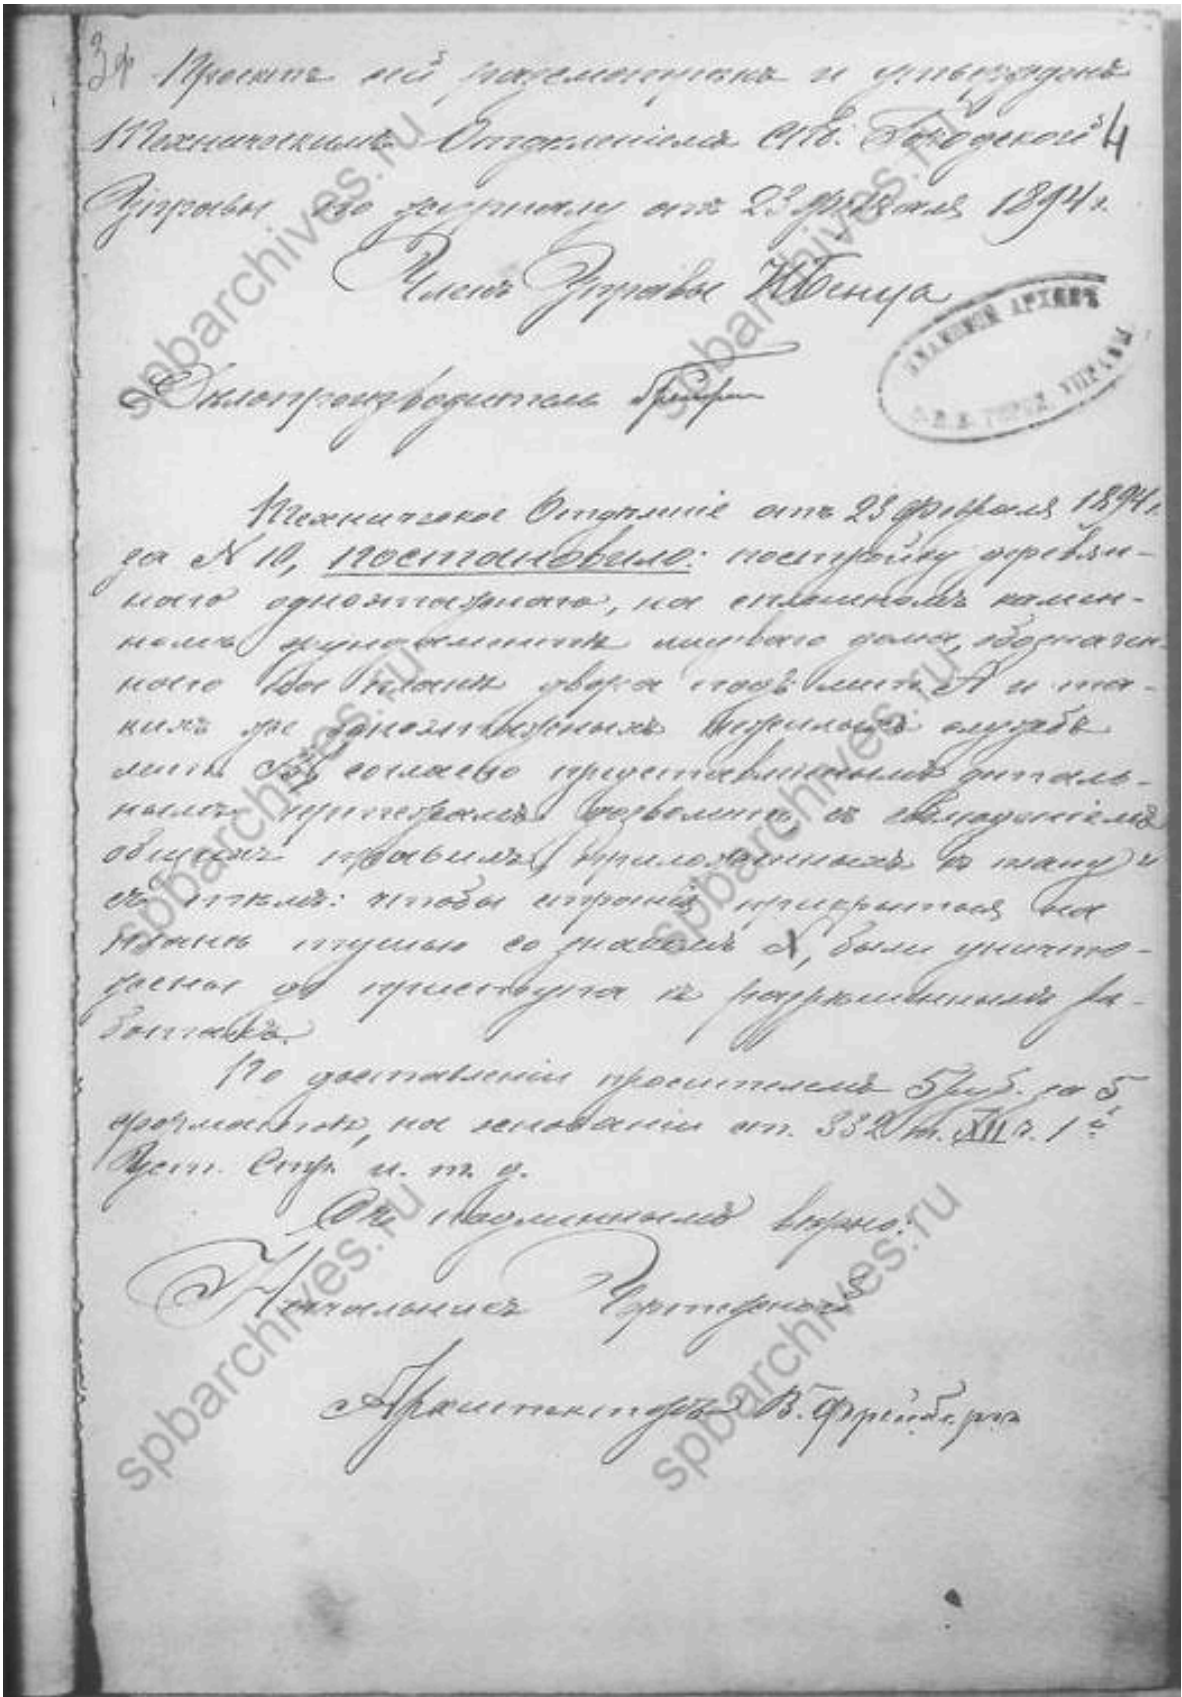 Проектъ сей разсмотрѣнъ и утвержденъ
Техническимъ Отдѣленіемъ СПб. Городской 4
Управы по журналу отъ 23 февраля 1894 г.
Членъ Управы И Бенуа
Дѣлопроизводитель
АРХИВЪ
ГОРОД. УПРАВЫ
Техническое Отдѣленіе отъ 23 февраля 1894 г.
за N 10, постановило: постройку деревян-
наго одноэтажнаго, на сплошномъ камен-
номъ фундаментѣ жилаго дома, обозначен-
наго на планѣ двора подъ лит. А и та-
кихъ же одноэтажныхъ нежилыхъ службъ
лит. согласно представленнымъ деталь-
нымъ чертежамъ дозволить съ соблюденіемъ
общихъ правилъ, приложенныхъ къ плану и
съ тѣмъ: чтобы строенія прикрытыя на
планѣ тушью со знакомъ X, были уничто-
жены до приступа къ разрѣшеннымъ ра-
ботамъ.
По доставленіи просителемъ 5 руб. за 5
форматовъ, на основаніи ст. 332 т. XII ч. 1й
Уст. Стр. и. т. д.
Съ подлиннымъ вѣрно:
Начальникъ Чертежной
Архитекторъ В. Фрейбергъ
spbarchives.ru
spbarchives.ru
spbarchives.ru
spbarchives.ru
spbarchives.ru
spbarchives.ru